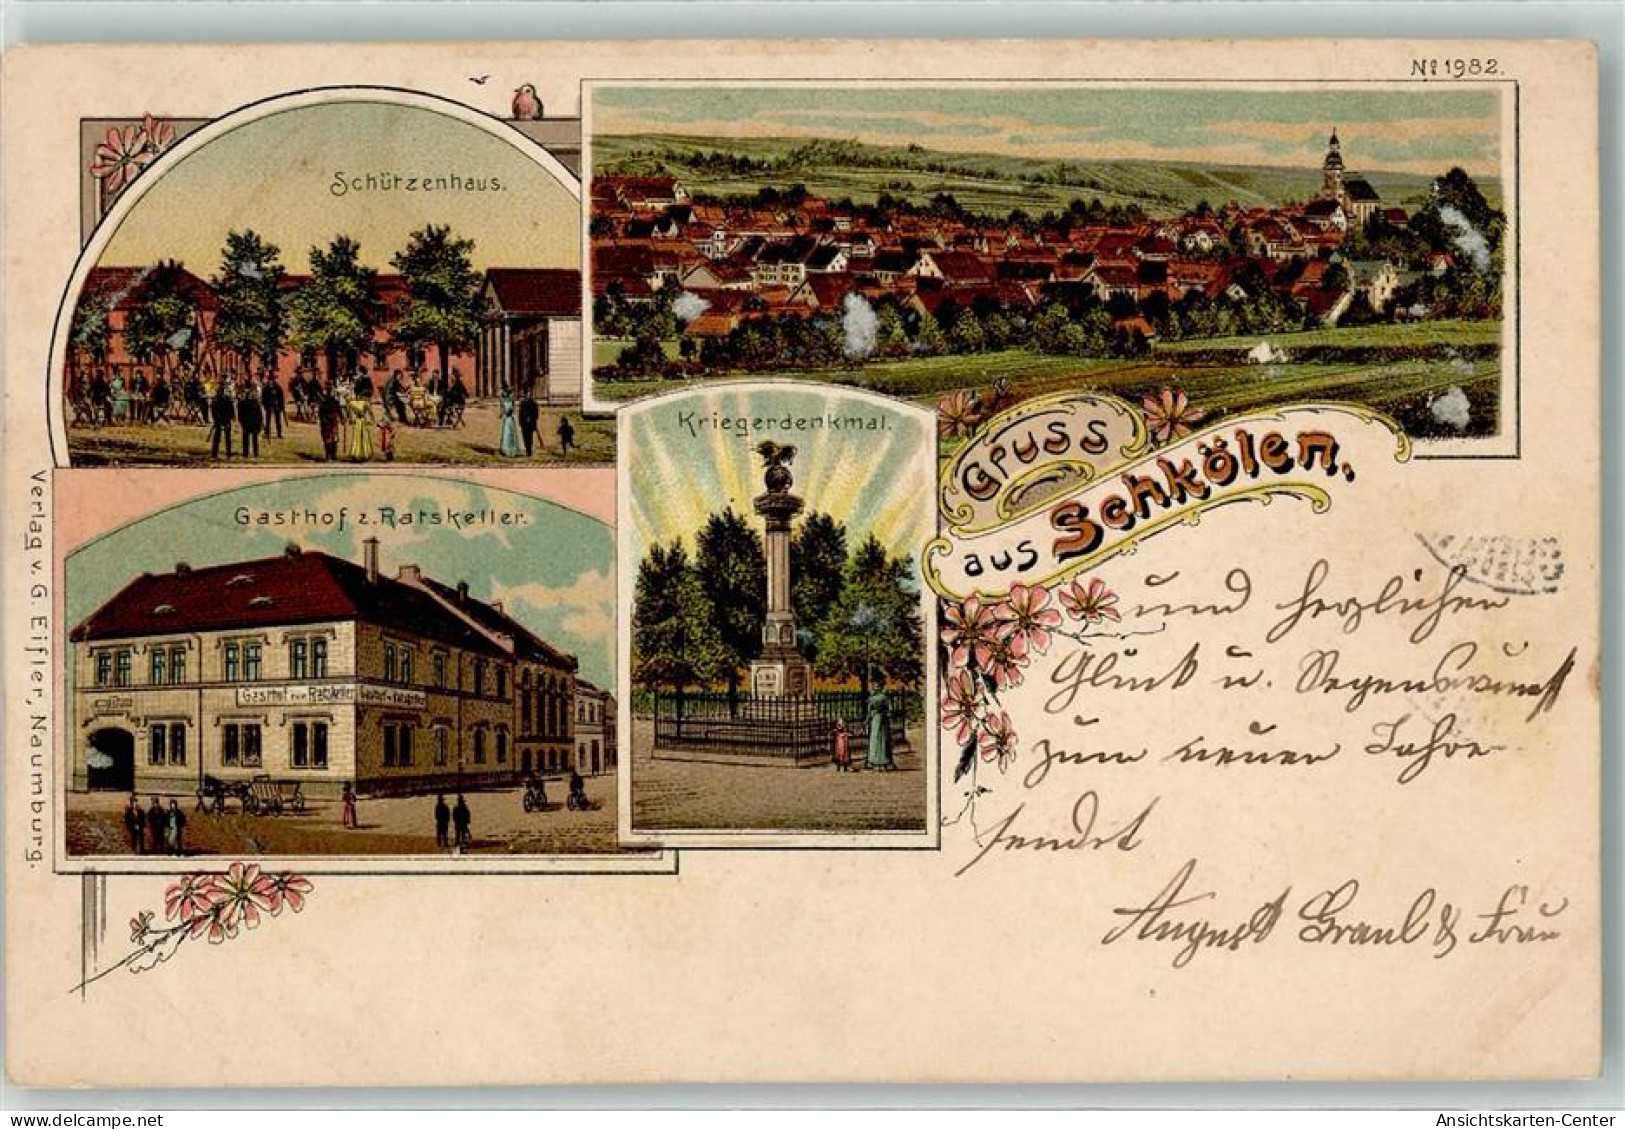 No 1982.
Schützenhaus.
Kriegerdenkmal.
Gruss
aus Schkölen.
Gasthof z. Ratskeller.
Gasthof zum Ratskeller
Verlag v. G. Eifler, Naumburg.
und herzlichen
Glück u. Segenswunsch
zum neuen Jahre
sendet
August Graul & Frau
Ansichtskarten-Center